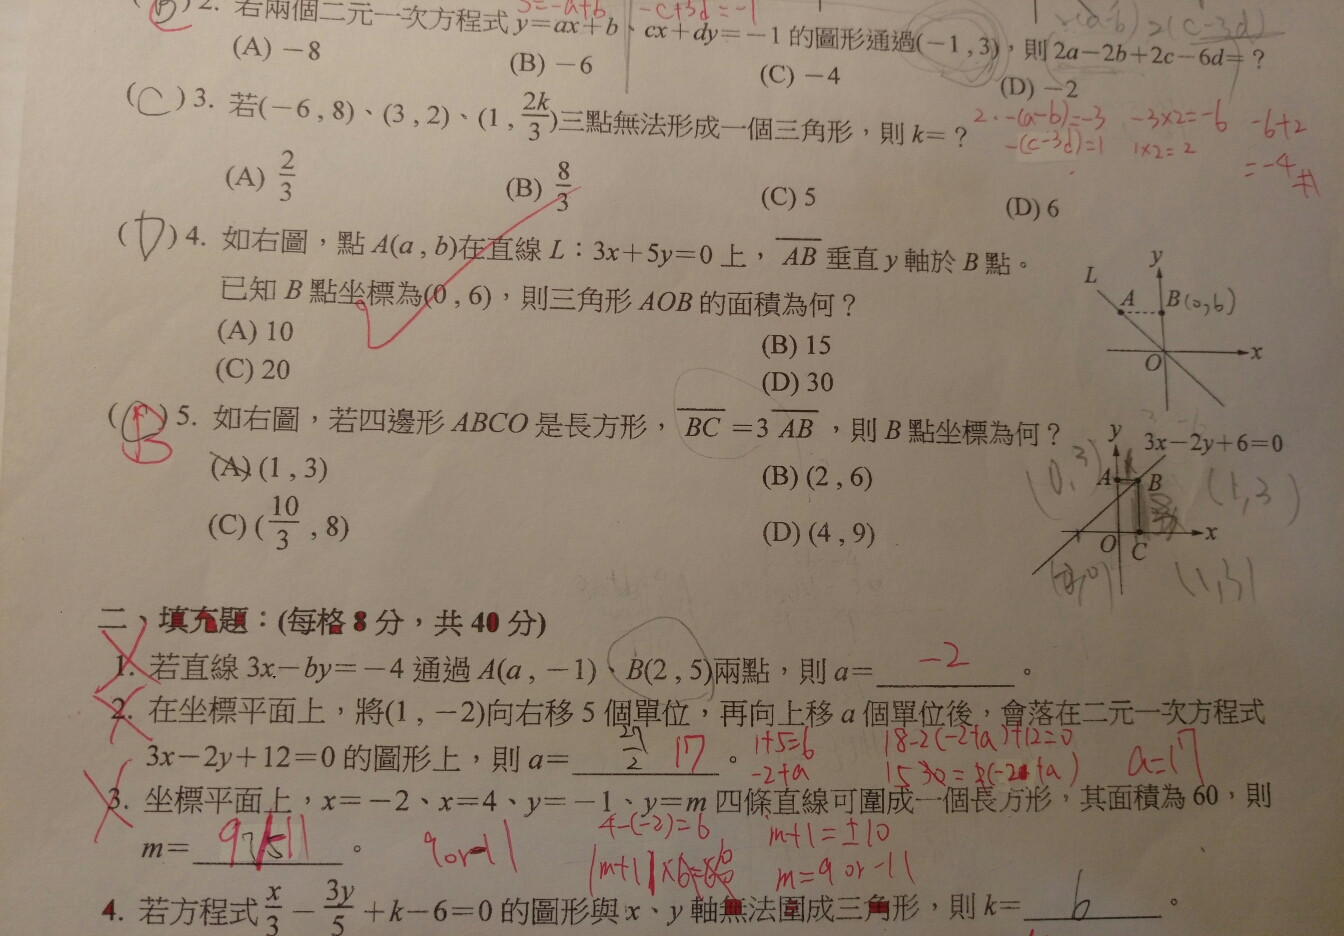 (B) 2. 若兩個二元一次方程式 y=ax+b、cx+dy=-1 的圖形通過(-1 , 3)，則 2a-2b+2c-6d=？
3=-a+b -c+3d=-1
(A) -8 (B) -6 (C) -4 (D) -2
(C) 3. 若(-6 , 8)、(3 , 2)、(1 , 2k/3)三點無法形成一個三角形，則 k=？
2. -(a-b)=-3 -3×2=-6 -6+2
-(c-3d)=1 1×2=2 =-4
(A) 2/3 (B) 8/3 (C) 5 (D) 6
(D) 4. 如右圖，點 A(a , b)在直線 L：3x+5y=0 上，AB 垂直 y 軸於 B 點。
已知 B 點坐標為(0 , 6)，則三角形 AOB 的面積為何？
(A) 10 (B) 15
(C) 20 (D) 30
y
L A B(0,6)
O x
(B) 5. 如右圖，若四邊形 ABCO 是長方形，BC =3 AB ，則 B 點坐標為何？
(A) (1 , 3) (B) (2 , 6)
(C) (10/3 , 8) (D) (4 , 9)
y 3x-2y+6=0
(0,3) A B (1,3)
O C x
(1,3)
二、填充題：(每格 8 分，共 40 分)
1. 若直線 3x-by=-4 通過 A(a , -1)、B(2 , 5)兩點，則 a= -2 。
2. 在坐標平面上，將(1 , -2)向右移 5 個單位，再向上移 a 個單位後，會落在二元一次方程式
3x-2y+12=0 的圖形上，則 a= 27/2 17 。
1+5=6 18-2(-2+a)+12=0 a=17
-2+a 30=2(-2+a)
3. 坐標平面上，x=-2、x=4、y=-1、y=m 四條直線可圍成一個長方形，其面積為 60，則
m= 。
9or-11 4-(-2)=6 m+1=±10
|m+1|×6=60 m=9 or -11
4. 若方程式 x/3 - 3y/5 +k-6=0 的圖形與 x、y 軸無法圍成三角形，則 k= 6 。